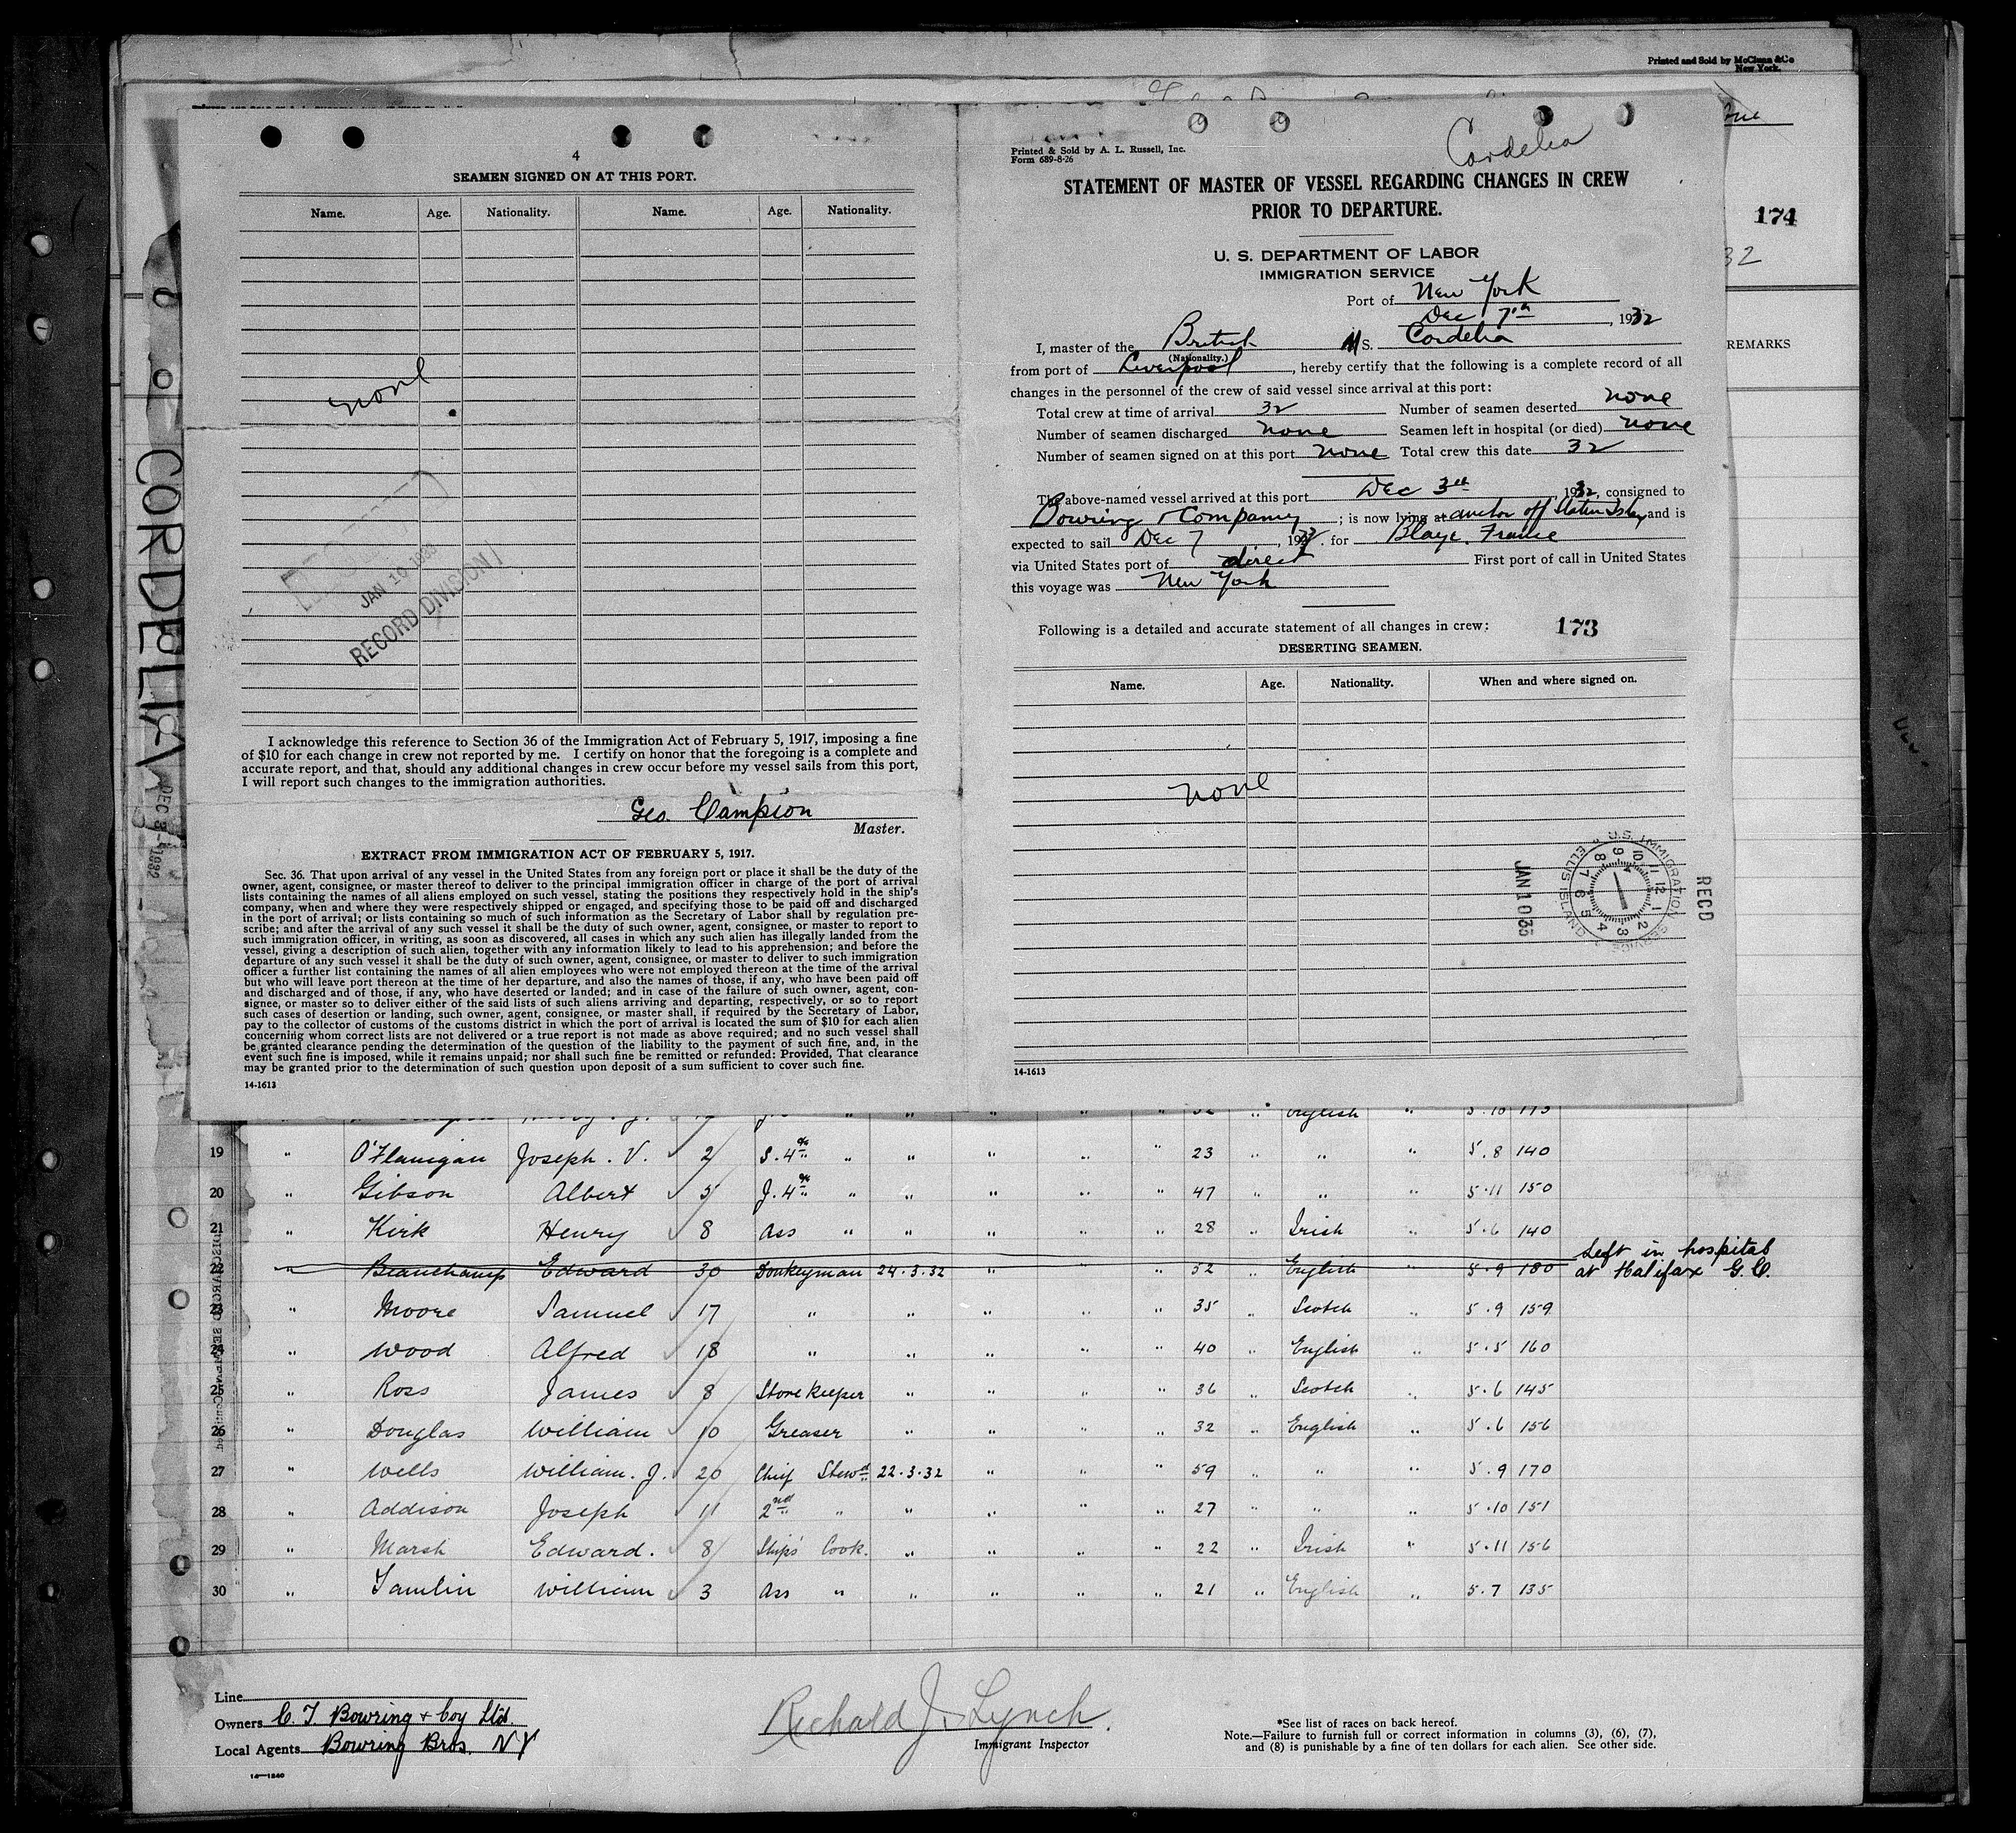 Printed and Sold by McClunn & Co
New York.
174
32
REMARKS
CORDELIA
DEC 3 - 1932
4
SEAMEN SIGNED ON AT THIS PORT.
Name. Age. Nationality. Name. Age. Nationality.
none
JAN 10 1933
RECORD DIVISION
I acknowledge this reference to Section 36 of the Immigration Act of February 5, 1917, imposing a fine
of $10 for each change in crew not reported by me. I certify on honor that the foregoing is a complete and
accurate report, and that, should any additional changes in crew occur before my vessel sails from this port,
I will report such changes to the immigration authorities.
Geo. Campion
Master.
EXTRACT FROM IMMIGRATION ACT OF FEBRUARY 5, 1917.
Sec. 36. That upon arrival of any vessel in the United States from any foreign port or place it shall be the duty of the
owner, agent, consignee, or master thereof to deliver to the principal immigration officer in charge of the port of arrival
lists containing the names of all aliens employed on such vessel, stating the positions they respectively hold in the ship's
company, when and where they were respectively shipped or engaged, and specifying those to be paid off and discharged
in the port of arrival; or lists containing so much of such information as the Secretary of Labor shall by regulation pre-
scribe; and after the arrival of any such vessel it shall be the duty of such owner, agent, consignee, or master to report to
such immigration officer, in writing, as soon as discovered, all cases in which any such alien has illegally landed from the
vessel, giving a description of such alien, together with any information likely to lead to his apprehension; and before the
departure of any such vessel it shall be the duty of such owner, agent, consignee, or master to deliver to such immigration
officer a further list containing the names of all alien employees who were not employed thereon at the time of the arrival
but who will leave port thereon at the time of her departure, and also the names of those, if any, who have been paid off
and discharged and of those, if any, who have deserted or landed; and in case of the failure of such owner, agent, con-
signee, or master so to deliver either of the said lists of such aliens arriving and departing, respectively, or so to report
such cases of desertion or landing, such owner, agent, consignee, or master shall, if required by the Secretary of Labor,
pay to the collector of customs of the customs district in which the port of arrival is located the sum of $10 for each alien
concerning whom correct lists are not delivered or a true report is not made as above required; and no such vessel shall
be granted clearance pending the determination of the question of the liability to the payment of such fine, and, in the
event such fine is imposed, while it remains unpaid; nor shall such fine be remitted or refunded: Provided, That clearance
may be granted prior to the determination of such question upon deposit of a sum sufficient to cover such fine.
14-1613
Printed & Sold by A. L. Russell, Inc.
Form 689-8-26
Cordelia
STATEMENT OF MASTER OF VESSEL REGARDING CHANGES IN CREW
PRIOR TO DEPARTURE.
U. S. DEPARTMENT OF LABOR
IMMIGRATION SERVICE
Port of New York
Dec 7th, 1932
I, master of the British M S. Cordelia
(Nationality.)
from port of Liverpool, hereby certify that the following is a complete record of all
changes in the personnel of the crew of said vessel since arrival at this port:
Total crew at time of arrival 32 Number of seamen deserted none
Number of seamen discharged none Seamen left in hospital (or died) none
Number of seamen signed on at this port none Total crew this date 32
The above-named vessel arrived at this port Dec 3rd 1932, consigned to
Bowring & Company; is now lying at anchor off Staten Island and is
expected to sail Dec 7, 1932. for Blaye. France
via United States port of direct First port of call in United States
this voyage was New York
Following is a detailed and accurate statement of all changes in crew: 173
DESERTING SEAMEN.
Name. Age. Nationality. When and where signed on.
none
JAN 10 33
U.S. IMMIGRATION SERVICE ELLIS ISLAND
RECD
14-1613
32 " English " 5.10 173
19 " O'Flanigan Joseph. V. 2 S. 4th " " " " " 23 " " " 5.8 140
20 " Gibson Albert 5 J. 4th " " " " " 47 " " " 5.11 150
21 " Kirk Henry 8 Ass " " " " " 28 " Irish " 5.6 140
22 " Beauchamp Edward 30 Donkeyman 24.3.32 " " " 52 " English " 5.9 180 Left in hospital
at Halifax G.C.
23 " Moore Samuel 17 " " " " " 35 " Scotch " 5.9 159
24 " Wood Alfred 18 " " " " " 40 " English " 5.5 160
25 " Ross James 8 Storekeeper " " " " 36 " Scotch " 5.6 145
26 " Douglas William 10 Greaser " " " " 32 " English " 5.6 156
27 " Wells William. J. 20 Chief Stewd 22.3.32 " " " 59 " " " 5.9 170
28 " Addison Joseph 11 2nd " " " " " 27 " " " 5.10 151
29 " Marsh Edward. 8 Ships Cook. " " " " 22 " Irish " 5.11 156
30 " Tamlin William 3 Ass " " " " " 21 " English " 5.7 135
Line
Owners C. T. Bowring & Coy Ltd.
Local Agents Bowring Bros. NY
14-1240
Richald J. Lynch.
Immigrant Inspector
*See list of races on back hereof.
Note.—Failure to furnish full or correct information in columns (3), (6), (7),
and (8) is punishable by a fine of ten dollars for each alien. See other side.